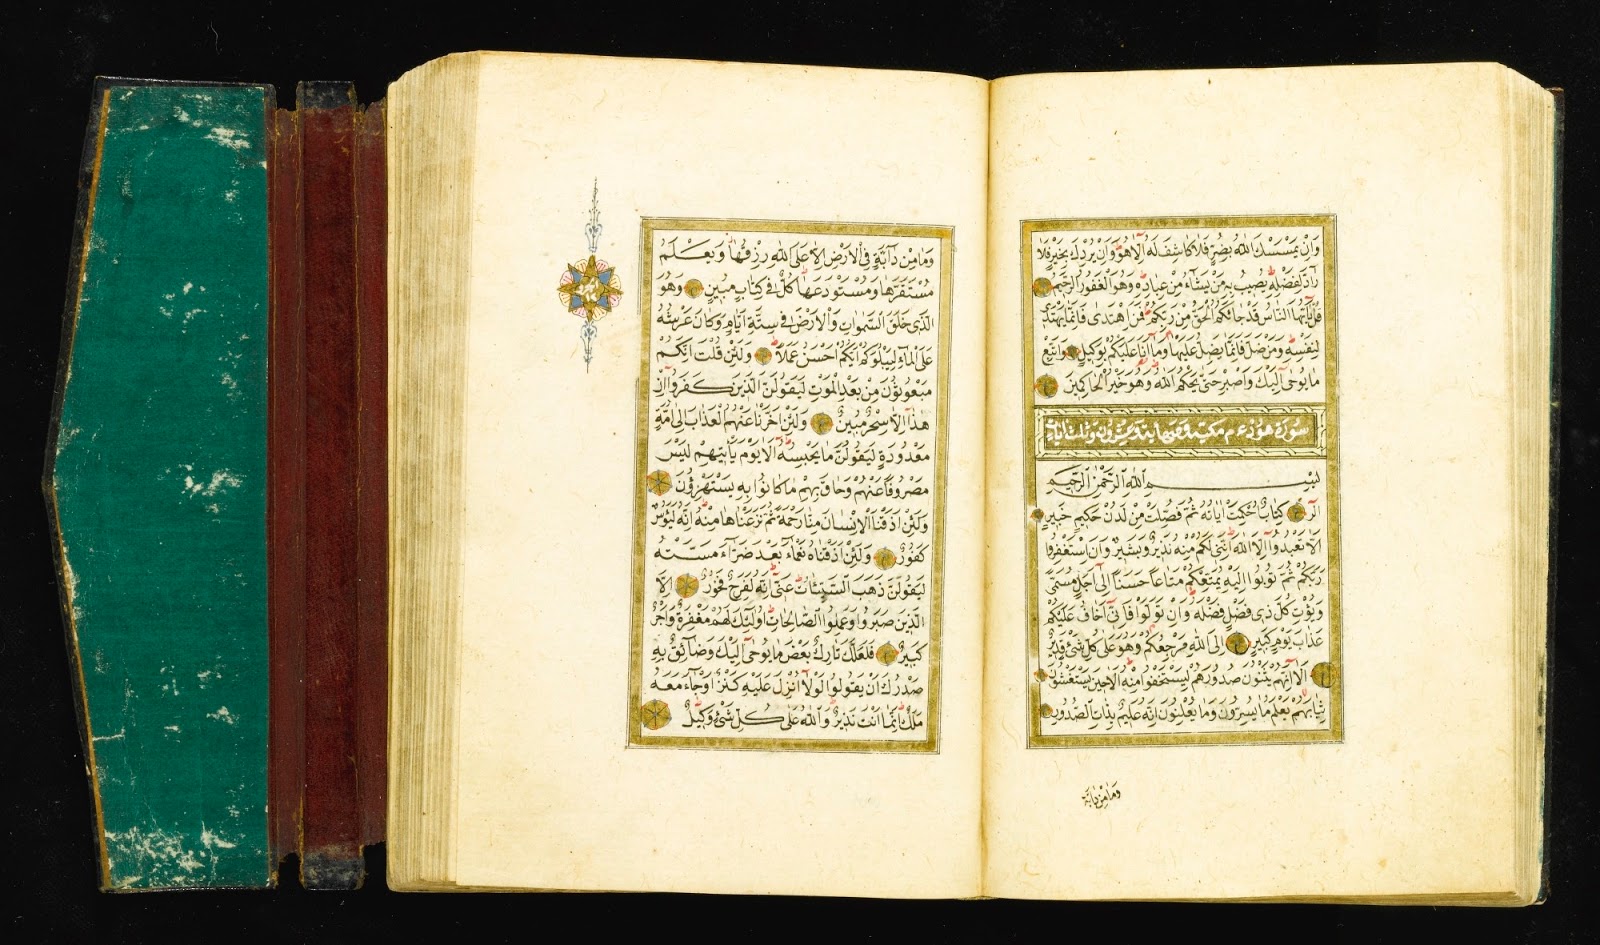 وَاِنْ يَمْسَسْكَ اللّٰهُ بِضُرٍّ فَلَا كَاشِفَ لَهُ اِلَّا هُوَ وَاِنْ يُرِدْكَ بِخَيْرٍ فَلَا
رَادَّ لِفَضْلِهِ يُصِيبُ بِهِ مَنْ يَشَاءُ مِنْ عِبَادِهِ وَهُوَ الْغَفُورُ الرَّحِيمُ
قُلْ يَا اَيُّهَا النَّاسُ قَدْ جَاءَكُمُ الْحَقُّ مِنْ رَبِّكُمْ فَمَنِ اهْتَدٰى فَاِنَّمَا يَهْتَدِى
لِنَفْسِهِ وَمَنْ ضَلَّ فَاِنَّمَا يَضِلُّ عَلَيْهَا وَمَا اَنَا عَلَيْكُمْ بِوَكِيلٍ وَاتَّبِعْ
مَا يُوحٰى اِلَيْكَ وَاصْبِرْ حَتّٰى يَحْكُمَ اللّٰهُ وَهُوَ خَيْرُ الْحَاكِمِينَ
سورة هود ع م مكية وهى مائة وعشرون وثلث ايات
بِسْمِ اللّٰهِ الرَّحْمٰنِ الرَّحِيمِ
الٓرٰ كِتَابٌ اُحْكِمَتْ اٰيَاتُهُ ثُمَّ فُصِّلَتْ مِنْ لَدُنْ حَكِيمٍ خَبِيرٍ
اَلَّا تَعْبُدُوا اِلَّا اللّٰهَ اِنَّنِى لَكُمْ مِنْهُ نَذِيرٌ وَبَشِيرٌ وَاَنِ اسْتَغْفِرُوا
رَبَّكُمْ ثُمَّ تُوبُوا اِلَيْهِ يُمَتِّعْكُمْ مَتَاعًا حَسَنًا اِلٰى اَجَلٍ مُسَمًّى
وَيُؤْتِ كُلَّ ذِى فَضْلٍ فَضْلَهُ وَاِنْ تَوَلَّوْا فَاِنِّى اَخَافُ عَلَيْكُمْ
عَذَابَ يَوْمٍ كَبِيرٍ اِلَى اللّٰهِ مَرْجِعُكُمْ وَهُوَ عَلٰى كُلِّ شَىْءٍ قَدِيرٌ
اَلَا اِنَّهُمْ يَثْنُونَ صُدُورَهُمْ لِيَسْتَخْفُوا مِنْهُ اَلَا حِينَ يَسْتَغْشُونَ
ثِيَابَهُمْ يَعْلَمُ مَا يُسِرُّونَ وَمَا يُعْلِنُونَ اِنَّهُ عَلِيمٌ بِذَاتِ الصُّدُورِ
وَمَا مِنْ دَابَّةٍ
وَمَا مِنْ دَابَّةٍ فِى الْاَرْضِ اِلَّا عَلَى اللّٰهِ رِزْقُهَا وَيَعْلَمُ
مُسْتَقَرَّهَا وَمُسْتَوْدَعَهَا كُلٌّ فِى كِتَابٍ مُبِينٍ وَهُوَ
الَّذِى خَلَقَ السَّمٰوَاتِ وَالْاَرْضَ فِى سِتَّةِ اَيَّامٍ وَكَانَ عَرْشُهُ
عَلَى الْمَاءِ لِيَبْلُوَكُمْ اَيُّكُمْ اَحْسَنُ عَمَلًا وَلَئِنْ قُلْتَ اِنَّكُمْ
مَبْعُوثُونَ مِنْ بَعْدِ الْمَوْتِ لَيَقُولَنَّ الَّذِينَ كَفَرُوا اِنْ
هٰذَا اِلَّا سِحْرٌ مُبِينٌ وَلَئِنْ اَخَّرْنَا عَنْهُمُ الْعَذَابَ اِلٰى اُمَّةٍ
مَعْدُودَةٍ لَيَقُولُنَّ مَا يَحْبِسُهُ اَلَا يَوْمَ يَاْتِيهِمْ لَيْسَ
مَصْرُوفًا عَنْهُمْ وَحَاقَ بِهِمْ مَا كَانُوا بِهِ يَسْتَهْزِؤُنَ
وَلَئِنْ اَذَقْنَا الْاِنْسَانَ مِنَّا رَحْمَةً ثُمَّ نَزَعْنَاهَا مِنْهُ اِنَّهُ لَيَؤُسٌ
كَفُورٌ وَلَئِنْ اَذَقْنَاهُ نَعْمَاءَ بَعْدَ ضَرَّاءَ مَسَّتْهُ
لَيَقُولَنَّ ذَهَبَ السَّيِّئَاتُ عَنِّى اِنَّهُ لَفَرِحٌ فَخُورٌ اِلَّا
الَّذِينَ صَبَرُوا وَعَمِلُوا الصَّالِحَاتِ اُولٰئِكَ لَهُمْ مَغْفِرَةٌ وَاَجْرٌ
كَبِيرٌ فَلَعَلَّكَ تَارِكٌ بَعْضَ مَا يُوحٰى اِلَيْكَ وَضَائِقٌ بِهِ
صَدْرُكَ اَنْ يَقُولُوا لَوْلَا اُنْزِلَ عَلَيْهِ كَنْزٌ اَوْ جَاءَ مَعَهُ
مَلَكٌ اِنَّمَا اَنْتَ نَذِيرٌ وَاللّٰهُ عَلٰى كُلِّ شَىْءٍ وَكِيلٌ